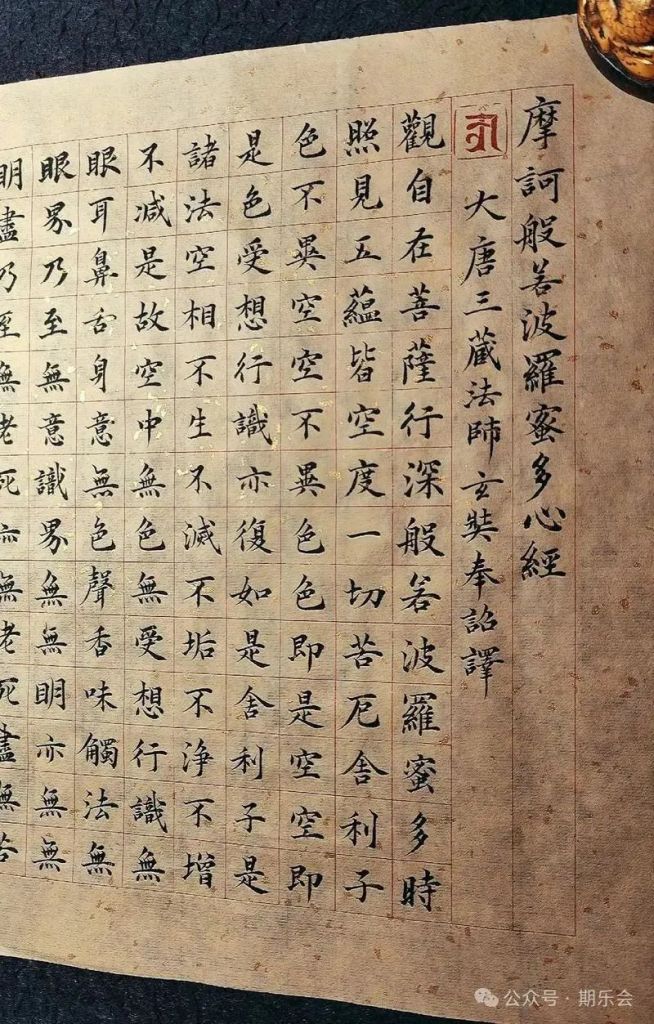 摩訶般若波羅蜜多心經
大唐三藏法師玄奘奉詔譯
觀自在菩薩行深般若波羅蜜多時
照見五蘊皆空度一切苦厄舍利子
色不異空空不異色色即是空空即
是色受想行識亦復如是舍利子是
諸法空相不生不滅不垢不浄不增
不减是故空中無色無受想行識無
眼耳鼻舌身意無色聲香味觸法無
眼界乃至無意識界無無明亦無無
明盡乃至無老死亦無老死盡無苦
公众号·期乐会